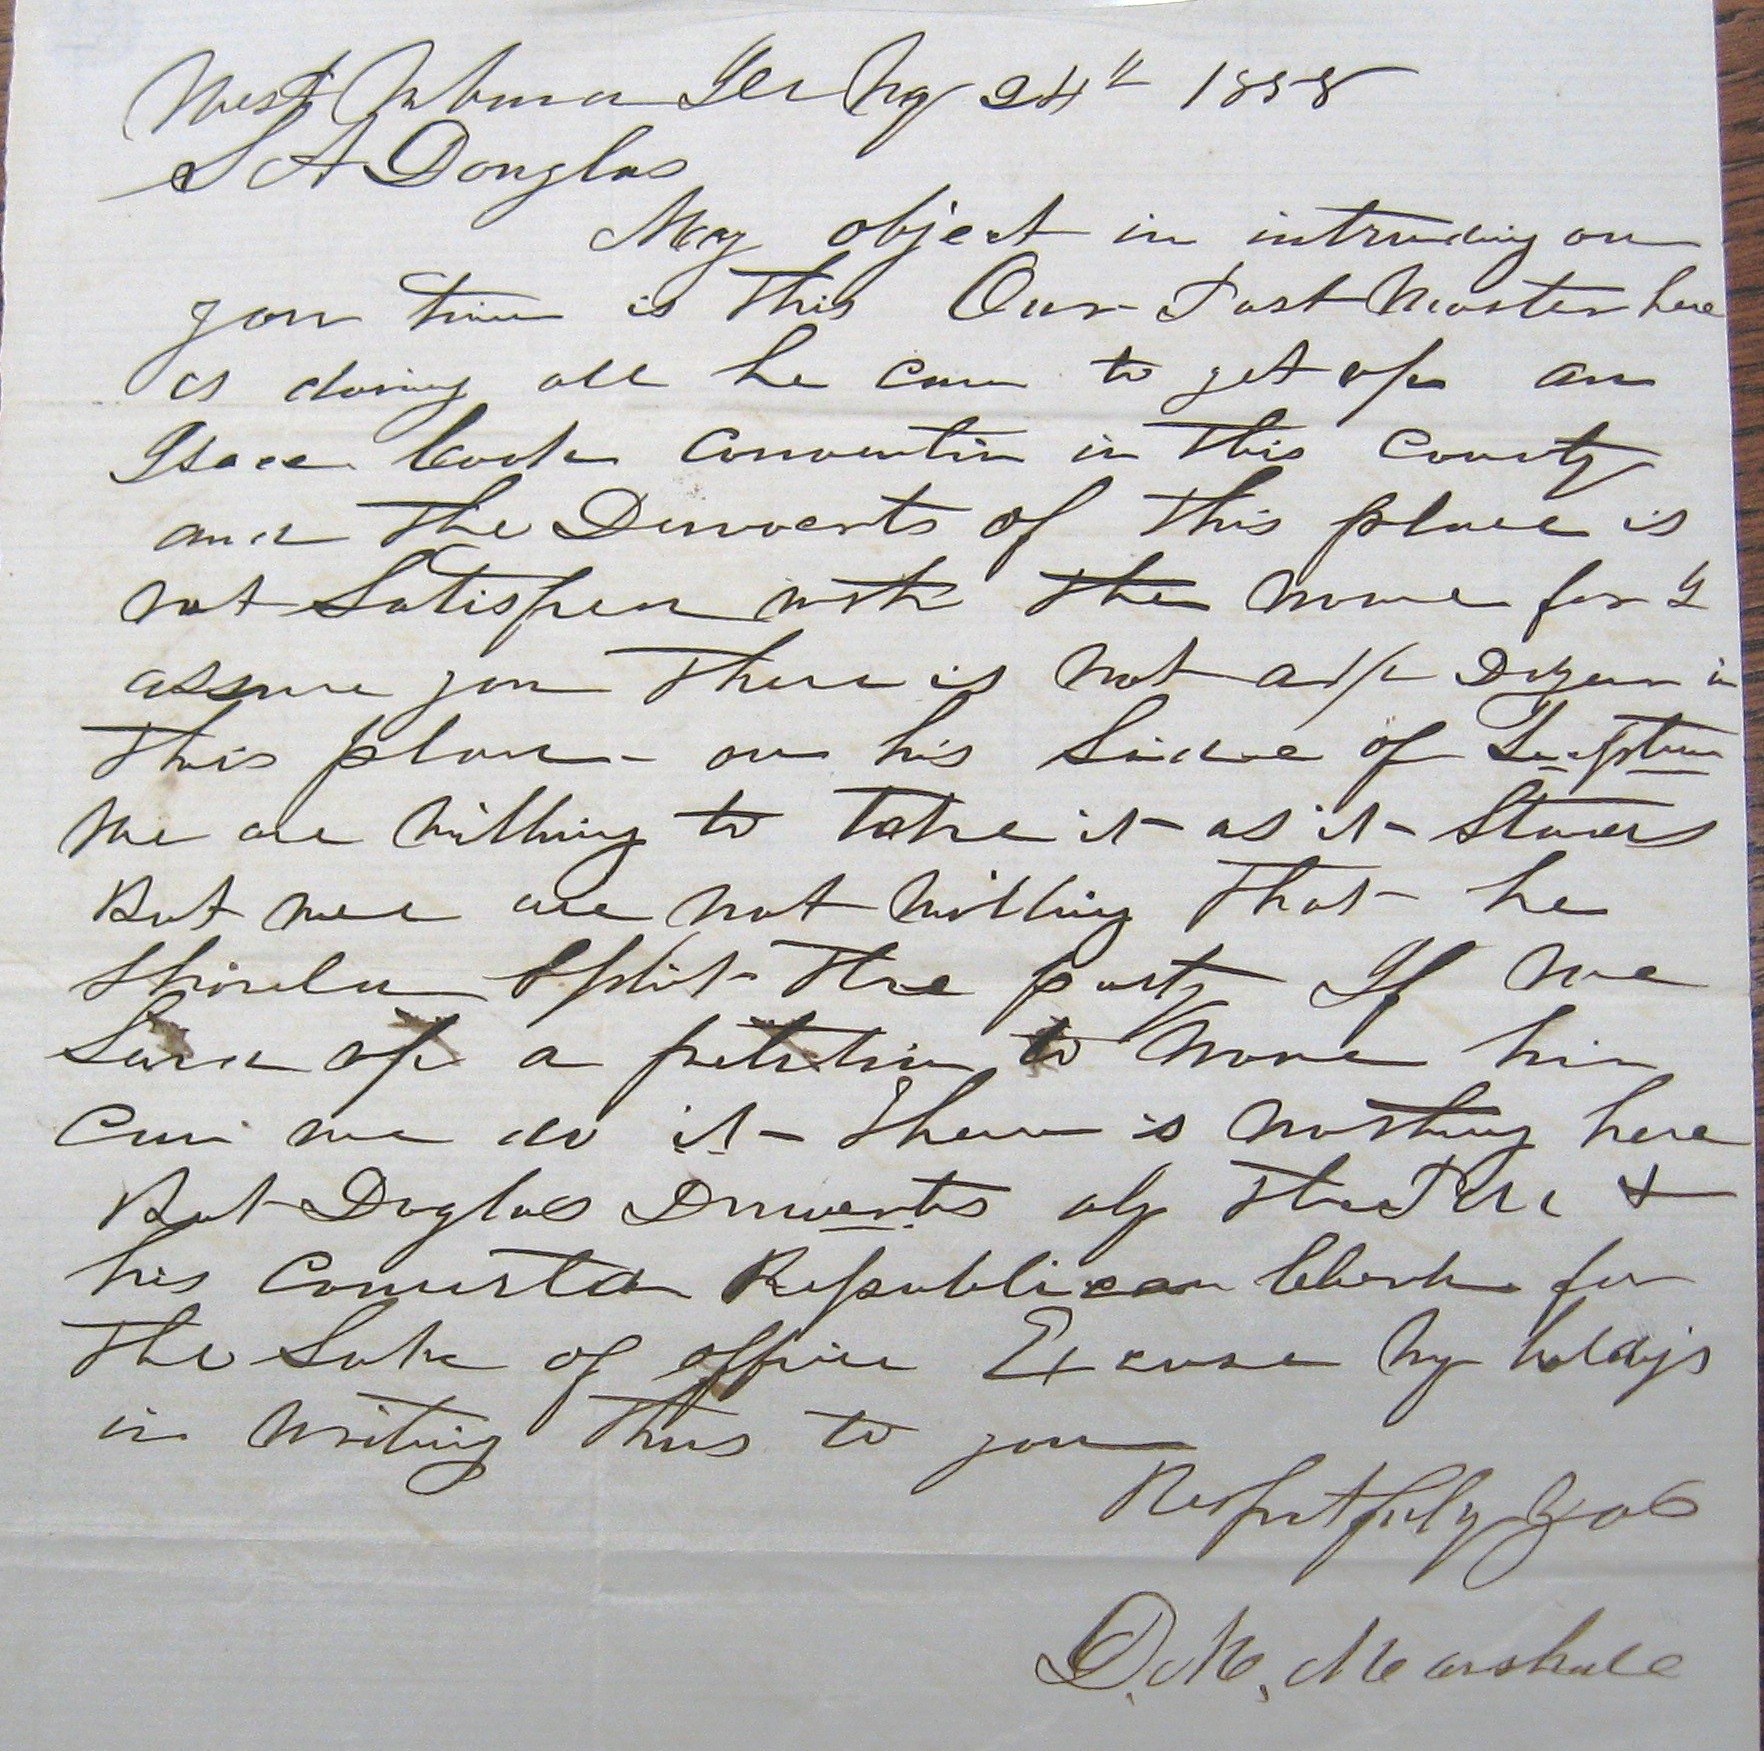 West Urbana Ills My 24th 1858
S A Douglas
May object in intruding on
your time is this Our Post Master here
is doing all he can to get up an
Isaac Cook Convention in this County
and the Democrats of this place is
not Satisfied with the move for I
assure you there is not a 1/2 Dozen in
this place on his Side of
We are willing to take it as it Stands
But we are not willing that he
should split the party If we
Send up a petition to move him
Can we do it There is nothing here
But Duglas Democrats only the P M &
his converted Republican Clerk for
the Sake of office Excuse my
in writing thus to you
Respectfully Yours
D. M. Marshall